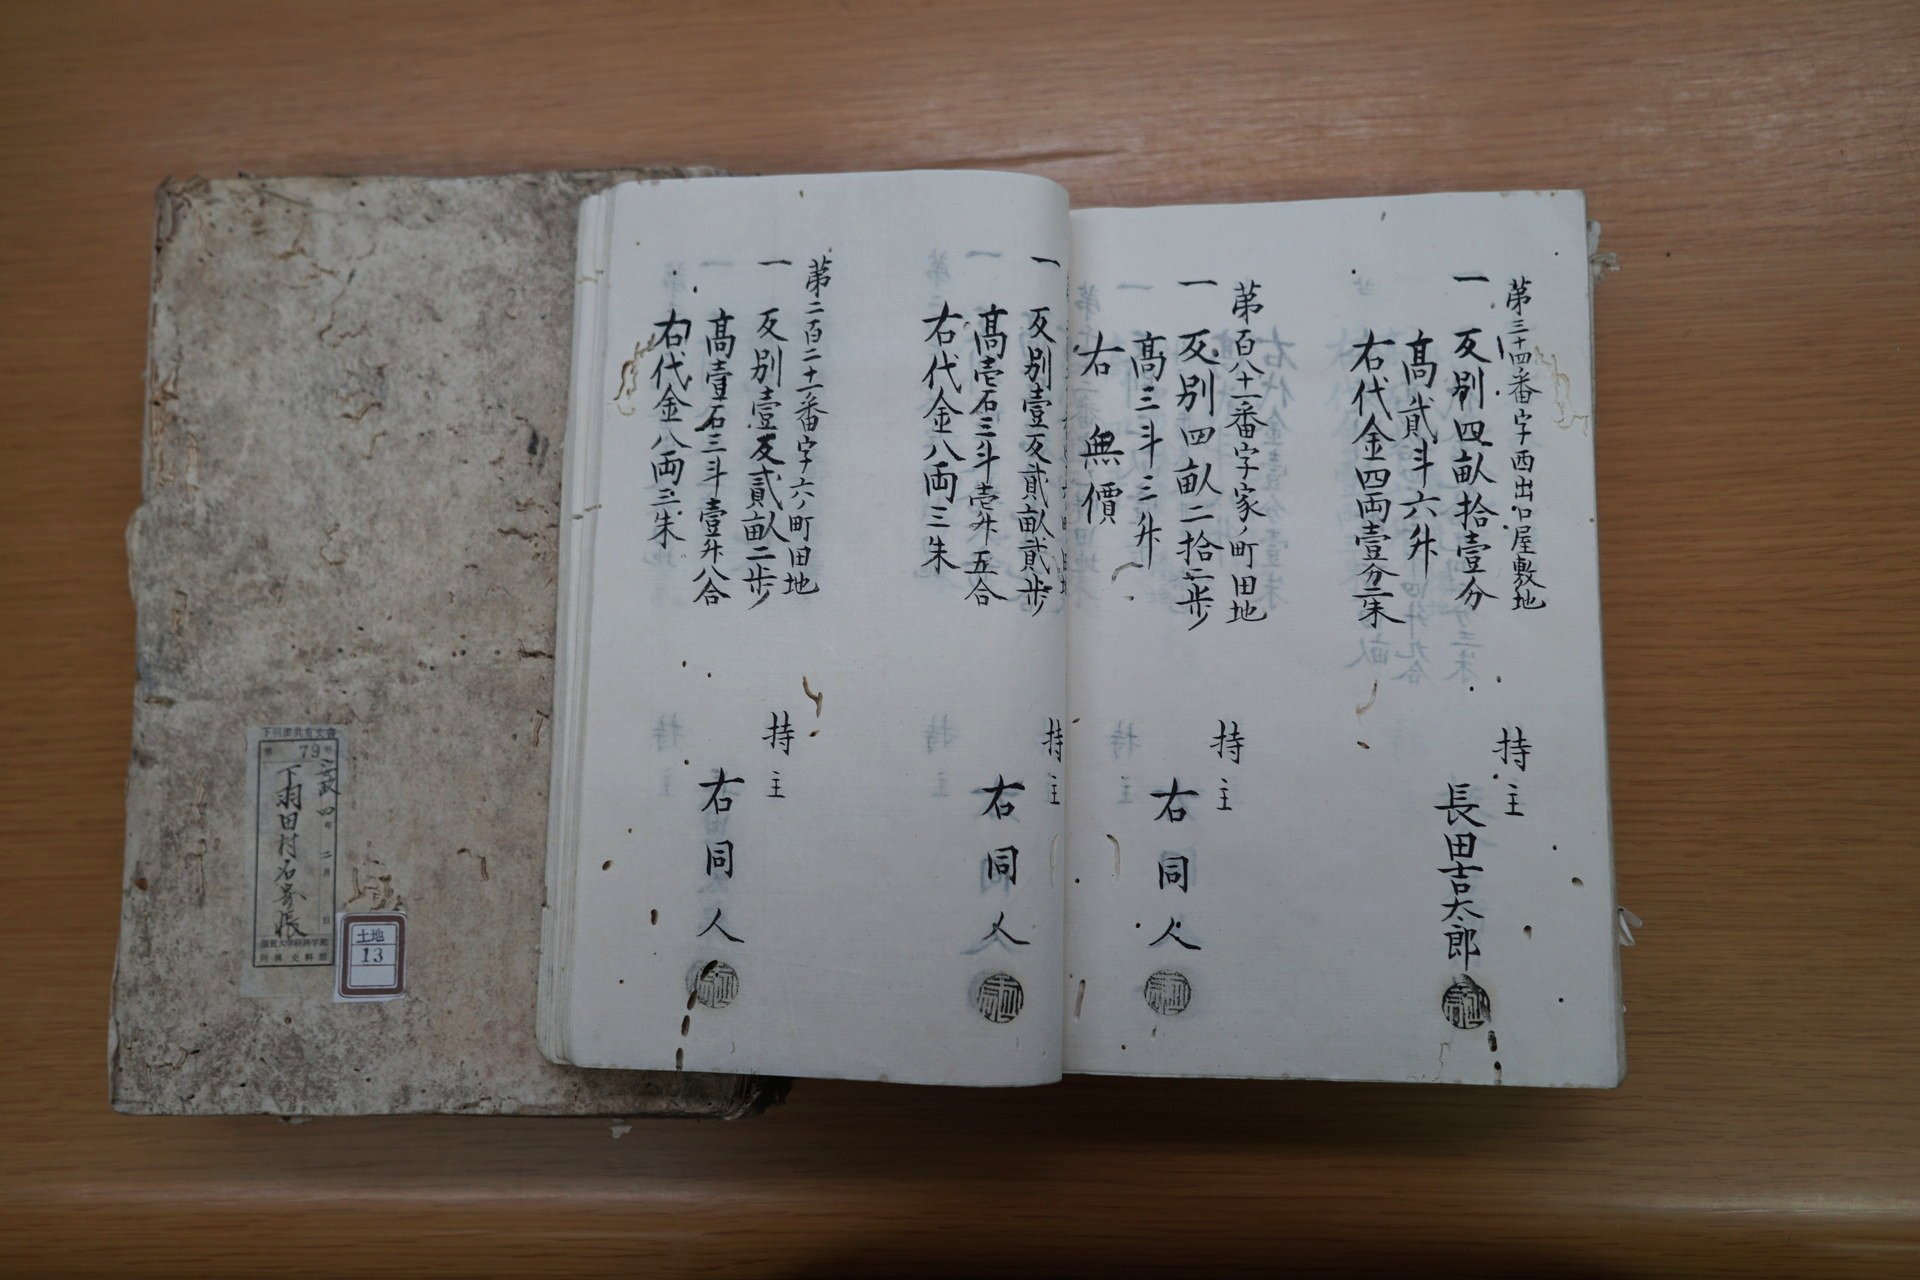 第三十四番字西出口屋敷地
一 反別四畝拾壹分
髙貳斗六舛
右代金四両壹分二朱
持主
長田吉太郎
第百八十一番字家ノ町田地
一 反別四畝二拾二歩
髙三斗三舛
右 無價
持主
右同人
一 反別壹反貳畝貳歩
髙壱石三斗壱舛五合
右代金八両三朱
持主
右同人
第二百二十一番字六ノ町田地
一 反別壹反貳畝二歩
髙壹石三斗壹舛八合
右代金八両三朱
持主
右同人
79号
四年二月
下羽田村名寄帳
土地
13